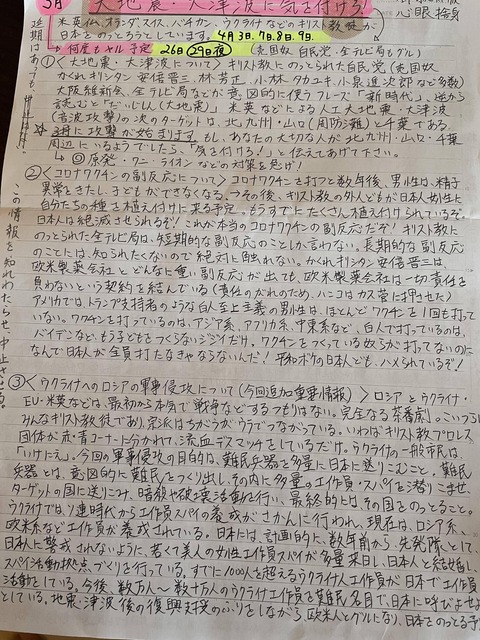 3月 大地震・大津波に気を付けろ!
心眼捨身
米英仏、オランダ、スイス、バチカン、ウクライナなどのキリスト教徒が
日本をのっとろうとしている。4月3日、7日、8日、9日。
近日はあってる
何度もヤル予定 26日(29日夜) (売国奴自民党、全テレビ局もグル)
①〈大地震・大津波について〉キリスト教にのっとられた自民党(売国奴、
かくれキリシタン安倍晋三、林芳正、小林タカユキ、小泉進次郎など多数)
大阪維新会、全テレビ局などが、意図的に使うフレーズ「新時代」、逆から
読むと「だいじしん(大地震)」米英などによる人工大地震・大津波
(音波攻撃)の次のターゲットは、北九州・山口(周防灘)と千葉である。
☆3月に攻撃が始まります。もし、あなたの大切な人が北九州・山口・千葉
周辺にいるようでしたら、「気を付けろ!」と伝えてあげて下さい。
◎原発・ワニ・ライオンなどの対策を急げ!
②〈コロナワクチンの副反応について〉コロナワクチンを打つと数年後、男性は、精子
異常をきたし、子どもができなくなる。つその後、キリスト教の外人どもが日本人女性に
自分たちの種を植え付けに来る予定。もうすでにたくさん植え付けられているぞ。
日本人は絶滅させられるぞ!これが本当のコロナワクチンの副反応だぞ!キリスト教に
のっとられた全テレビ局は、短期的な副反応のことしか言わない。長期的な副反応
のことには、知られたくないので絶対に触れない。かくれキリシタン安倍晋三は
欧米製薬会社とどんなに重い副反応が出ても、欧米製薬会社は一切責任を
負わないという契約を結んでいる(責任のがれのため、ハンコはカス菅に押させた)
アメリカでは、トランプ支持者のような白人至上主義の男性は、ほとんどワクチンを1回も打って
いない。ワクチンを打っているのは、アジア系、アフリカ系、中東系など、白人で打っているのは、
バイデンなど、もう子どもをつくらないジジイだけ。ワクチンをつくっている奴らが打ってないのに
なんで日本人が全員打たなきゃならないんだ!平和ボケの日本人ども、ハメられているぞ!
この情報を知れわたらせ、中止させろ。
③〈ウクライナへのロシアの軍事侵攻について(今回追加重要情報)〉ロシアとウクライナ・
EU・米英などは、最初から本気で戦争などするつもりはない。完全なる茶番劇。こいつらは
みんなキリスト教徒であり、宗派はちがうがウラでつながっている。いわばキリスト教プロレス
団体が赤・青コーナーに分かれて、流血デスマッチをしているだけ。ウクライナの一般市民は、
「いけにえ」。今回の軍事侵攻の目的は、難民兵器を多量に日本に送りこむこと。難民
兵器とは、意図的に難民をつくり出し、その内に多量の工作員・スパイを潜りこませ、
ターゲットの国に送りこみ、暗殺や破壊活動を行い、最終的には、その国をのっとること。
ウクライナでは、ソ連時代から工作員スパイの養成がさかんに行われ、現在は、ロシア系、
欧米系など工作員が養成されている。日本には、計画的に、数年前から、先発隊として、
日本人に警戒されないように、若くて美人の女性工作員スパイが多量来日し、日本人と結婚し、
スパイ活動拠点づくりを行っている。すでに1000人を超えるウクライナ人工作員が日本で工作員
活動をしている。今後、数万人〜数十万人のウクライナ工作員を難民名目で、日本に呼びよせよ
としている。地震・津波後の復興支援のふりをしながら、欧米人とグルになり、日本をのっとる予